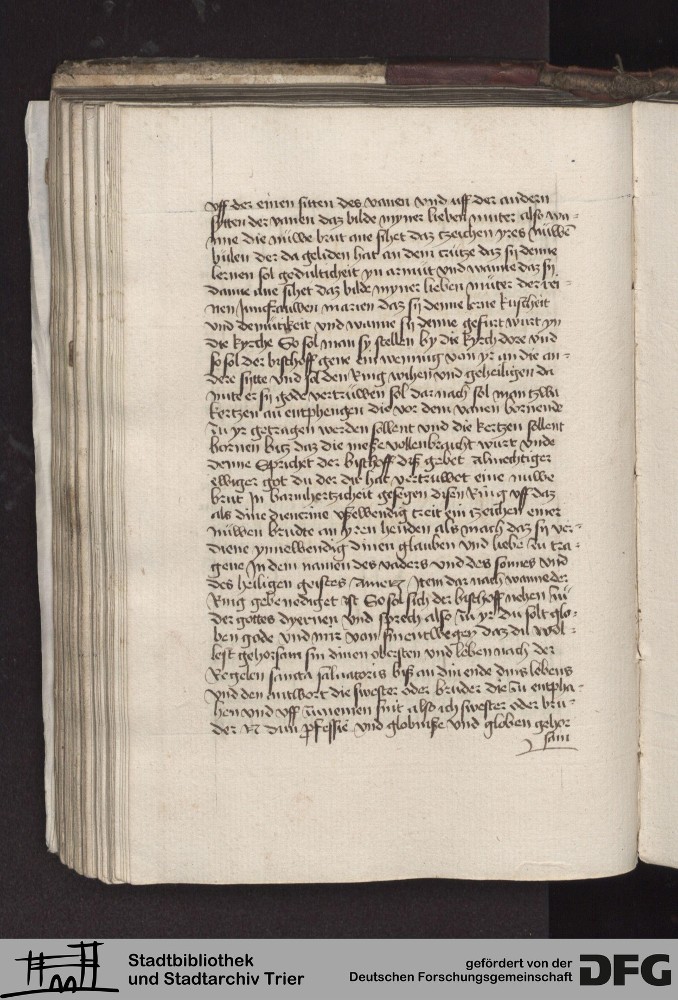 uff der einen sitten des vanen vnd uff der andern
sytten der vanen daz bilde myner lieben muter also wa-
nne die nuwe brut ane sihet daz tzeichen yres nuwen
bulen der da geliden hat an dem crutze daz sy denne
lernen sol gedultickeit yn armut vnd wanne daz sy
danne ane sihet daz bilde myner lieben muter der rei-
nen Junckfrauwen marien daz sy denne lerne kuscheit
vnd demutikeit vnd wanne sy denne gefurt wurt yn
die kyrche So sol man sy stellen by die kyrch dore vnd
so sol der bischoff gene ein wennig van yr an die an-
dere sytte vnd sol den Ring wihen vnd geheiligen da
mite er sy gode vertruwen sol dar nach sol man tzwa
kertzen an entphengen die vor dem vanen bornende
zu yr getragen werden sollent vnd die kertzen sollent
bornen bitz daz die messe vollenbracht wurt vnde
denne Sprichet der bischoff diß gebet Almechtiger
ewiger got du der dir hat vertruwet eine nuwe
brut In barmhertzicheit gesegen disen Ring uff daz
als dine dienerine vßwendig treit ein tzeichen einer
nuwen brudte an yren henden als mach daz sy ver-
diene ynnewendig dinen glauben vnd liebe zu tra-
gene In dem namen des vaders vnd des sonnes vnd
des heiligen geistes Amen Item dar nach wanne der
Ring gebenediget ist So sol sich der bischoff nehen zu
der gottes dyernen vnd sprech also zu yr Du solt glo-
ben gode vnd mir von sinentwegen daz du wol-
lest gehorsam sin dinen obersten vnd leben nach der
Regelen sancti saluatoris biß an din ende dins lebens
vnd den antwort die swester oder bruder die zu entpha-
hen vnd uff zunemen sint also ich swester oder bru-
der N dun professie vnd globniße vnd globen gehor
sam
Stadtbibliothek
und Stadtarchiv Trier
gefördert von der
Deutschen Forschungsgemeinschaft
DFG